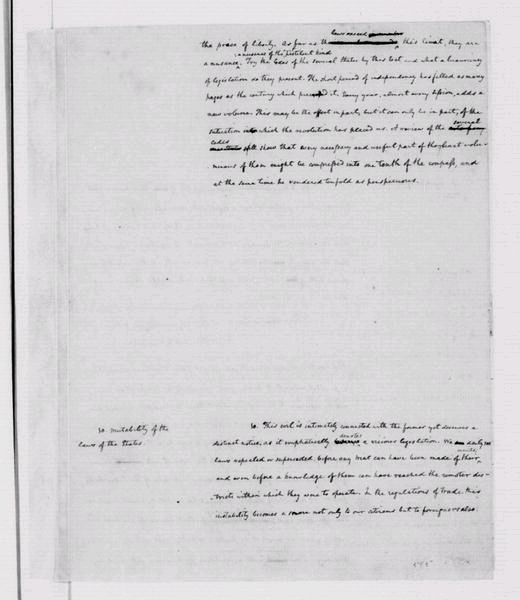 laws exceed
the praise of liberty. As far as the this limit, they are
a nuisance: a nuisance of the pestilent kind. Try the Codes of the several States by this test and what a luxuriancy
of legislation do they present. The short period of independency has filled as many
pages as the century which preceded it. Every year, almost every session, adds a
new volume. This may be the effect in part, but it can only be in part, of the
situation in which the revolution has placed us. A review of the several
codes will shew that every necessary and useful part of the least volu-
minous of them might be compressed into one tenth of the compass, and
at the same time be rendered tenfold as perspicuous.
10. mutability of the
laws of the States.
10. This evil is intimately connected with the former yet deserves a
distinct notice, as it emphatically denotes a vicious legislation. We daily see
laws repealed or superseded, before any trial can have been made of their merits;
and even before a knowledge of them can have reached the remoter dis-
tricts within which they were to operate. In the regulations of trade this
instability becomes a snare not only to our citizens but to foreigners also.